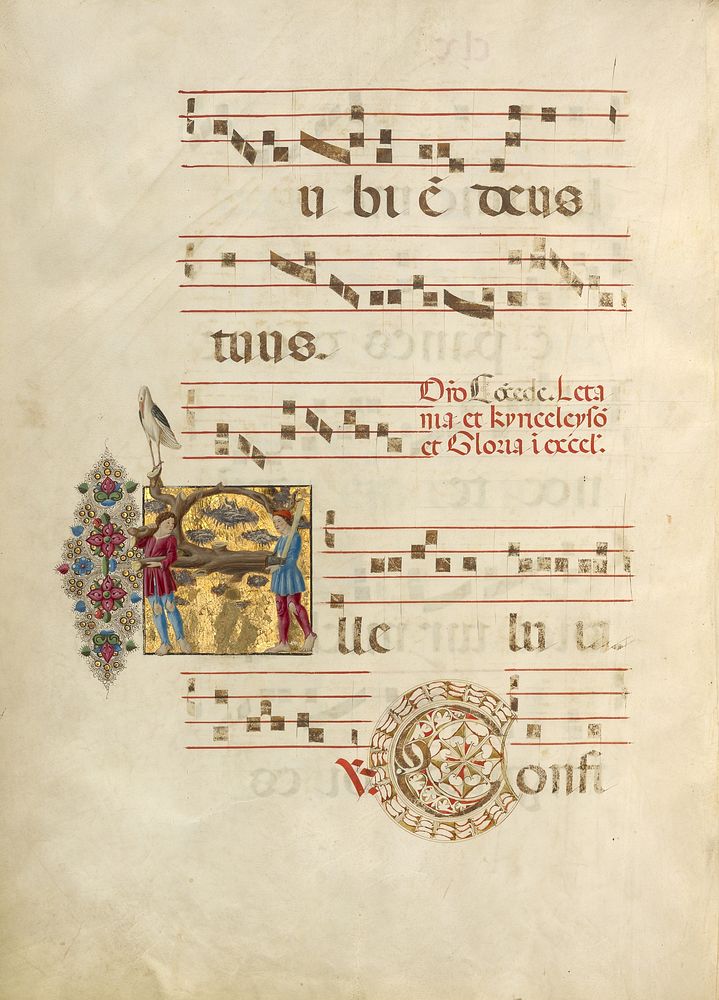 u bi ē deus
tuus.
Or̄o Cōcede. Leta
nia et kyrieeleysō
et Gloria i excel.
lle lu ia
℣. Confi